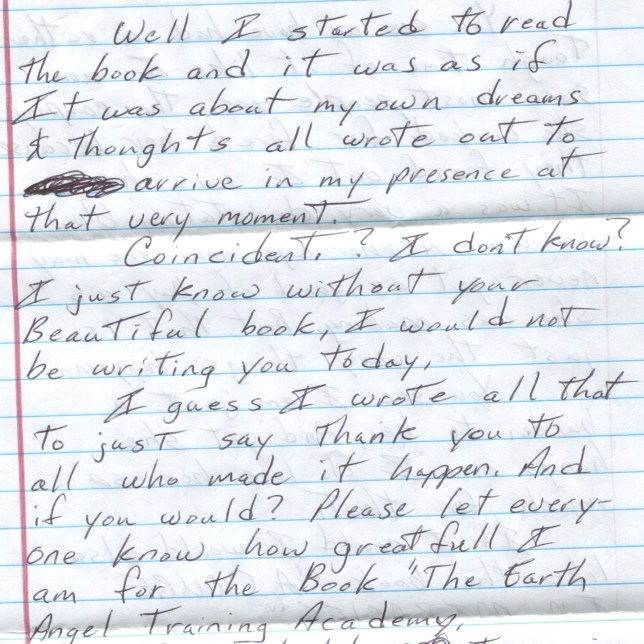 Well I started to read
the book and it was as if
It was about my own dreams
& Thoughts all wrote out to
arrive in my presence at
that very moment.
Coincident. ? I don't know?
I just know without your
Beautiful book, I would not
be writing you today,
I guess I wrote all that
to just say Thank you to
all who made it happen. And
if you would? Please let every-
one know how greatfull I
am for the Book "The Earth
Angel Training Academy,